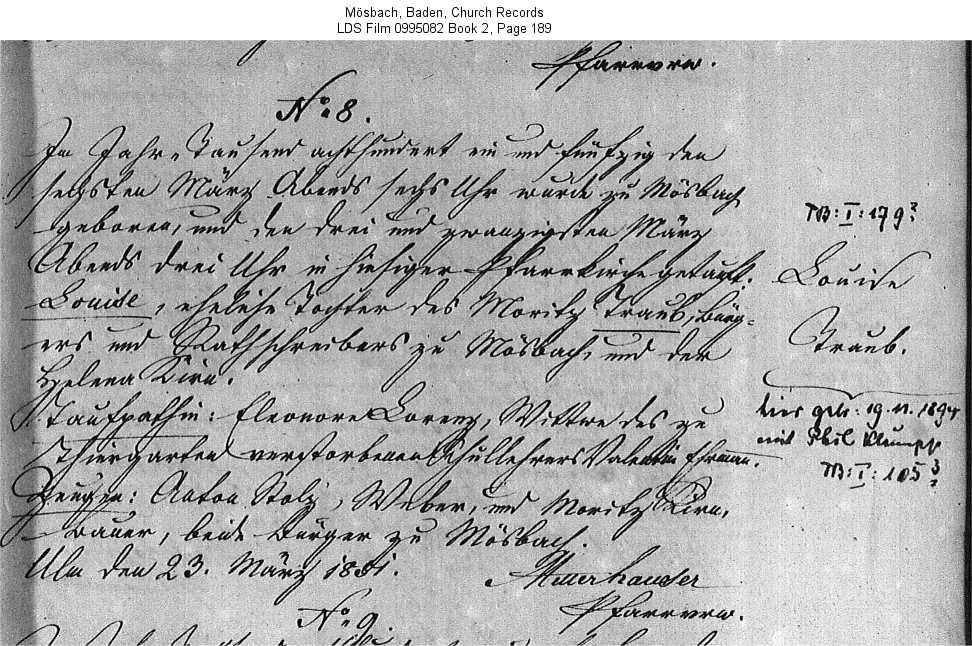 Mösbach, Baden, Church Records
LDS Film 0995082 Book 2, Page 189
Pfarrvrw.
No. 8.
Im Jahre Tausend achthundert ein und fünfzig den
sechsten März Abends sechs Uhr wurde zu Mösbach
geboren, und den drei und zwanzigsten März
Abends drei Uhr in hiesiger Pfarrkirche getauft:
Louise, eheliche Tochter des Moritz Traub, Bürg-
ers und Rathschreibers zu Mösbach, und der
Helena Kirn.
Taufpathin: Eleonore Lorenz, Wittwe des zu
Thiergarten verstorbenen Schullehrers Valentin Ehrman.
Zeugen: Anton Stolz, Weber, und Moritz Kirn,
Bauer, beide Bürger zu Mösbach.
Ulm den 23. März 1851.
Pfarrvrw.
No. 9.
TB: I: 179
Louise
Traub.
hier getr: 19. 11. 1894
mit Phil Klumpp
TB: I: 105